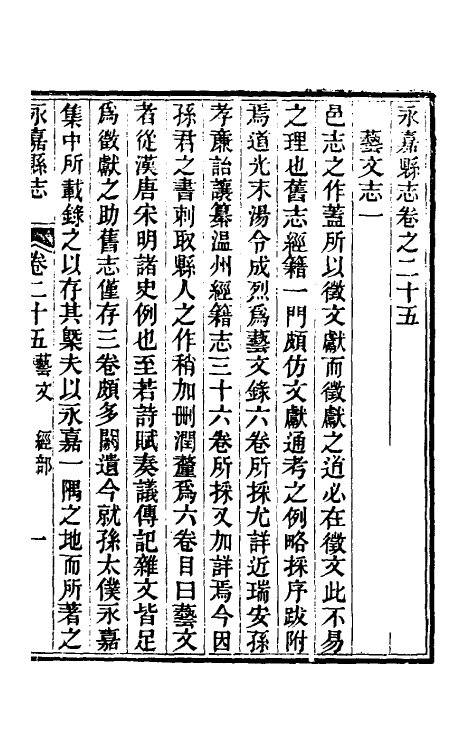 永嘉縣志卷之二十五
藝文志一
邑志之作蓋所以徵文獻而徵獻之道必在徵文此不易
之理也舊志經籍一門頗仿文獻通考之例略採序跋附
焉道光末湯令成烈爲藝文錄六卷所採尤詳近瑞安孫
孝廉詒讓纂溫州經籍志三十六卷所採又加詳焉今因
孫君之書刺取縣人之作稍加刪潤釐爲六卷目曰藝文
者從漢唐宋明諸史例也至若詩賦奏議傳記雜文皆足
爲徵獻之助舊志僅存三卷頗多闕遺今就孫太僕永嘉
集中所載錄之以存其槩夫以永嘉一隅之地而所著之
永嘉縣志 卷二十五藝文 經部 一